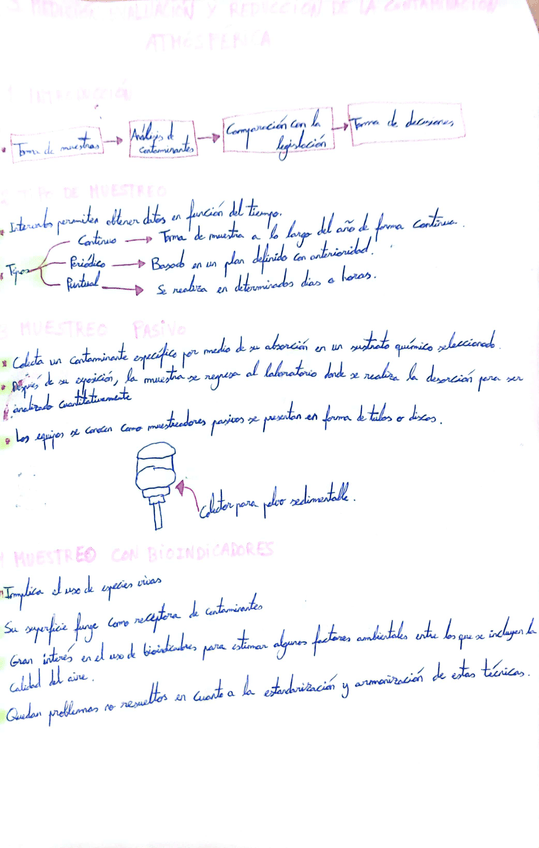 MEDICIÓN, EVALUACIÓN Y REDUCCIÓN DE LA CONTAMINACIÓN
ATMOSFÉRICA
INTRODUCCIÓN
Toma de muestras → Análisis de contaminantes → Comparación con la legislación → Toma de decisiones
DE MUESTREO
Intervalos permiten obtener datos en función del tiempo.
Continuo → Toma de muestra a lo largo del año de forma continua.
Tipos Periódico → Basado en un plan definido con anterioridad.
Puntual → Se realiza en determinados días o horas.
3 MUESTREO PASIVO
Colecta un contaminante específico por medio de su absorción en un sustrato químico seleccionado.
Después de su exposición, la muestra se regresa al laboratorio donde se realiza la desorción para ser
analizado cuantitativamente
Los equipos se conocen como muestreadores pasivos se presentan en forma de tubos o discos.
Colector para polvo sedimentable.
MUESTREO CON BIOINDICADORES
Implica el uso de especies vivas
Su superficie funge como receptora de contaminantes
Gran interés en el uso de bioindicadores para estimar algunos factores ambientales entre los que se incluyen la
calidad del aire.
Quedan problemas no resueltos en cuanto a la estandarización y armonización de estas técnicas.